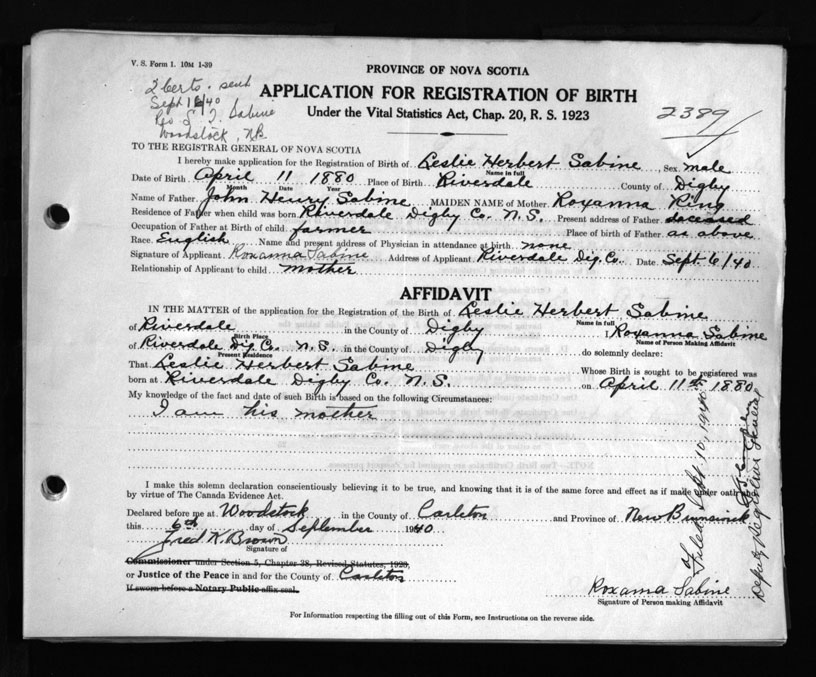 V. S. Form 1. 10M 1-39
2 certs. sent
Sept 16/40
S. T. Sabine
Woodstock, N.B.
PROVINCE OF NOVA SCOTIA
APPLICATION FOR REGISTRATION OF BIRTH
Under the Vital Statistics Act, Chap. 20, R. S. 1923
2389
TO THE REGISTRAR GENERAL OF NOVA SCOTIA
I hereby make application for the Registration of Birth of Leslie Herbert Sabine, Sex male
Name in full
Date of Birth April 11 1880 Place of Birth Riverdale County of Digby
Month Date Year
Name of Father John Henry Sabine MAIDEN NAME of Mother Roxanna Ring
Residence of Father when child was born Riverdale Digby Co. N.S. Present address of Father deceased
Occupation of Father at Birth of child farmer Place of birth of Father as above
Race. English Name and present address of Physician in attendance at birth none
Signature of Applicant Roxanna Sabine Address of Applicant Riverdale Dig. Co. Date Sept. 6/40
Relationship of Applicant to child mother
AFFIDAVIT
IN THE MATTER of the application for the Registration of the Birth of Leslie Herbert Sabine
Name in full
of Riverdale in the County of Digby I, Roxanna Sabine
Birth Place Name of Person Making Affidavit
of Riverdale Dig Co. N.S. in the County of Digby do solemnly declare:
Present Residence
That Leslie Herbert Sabine Whose Birth is sought to be registered was
born at Riverdale Digby Co. N.S. on April 11th 1880
My knowledge of the fact and date of such Birth is based on the following Circumstances:
I am his mother
I make this solemn declaration conscientiously believing it to be true, and knowing that it is of the same force and effect as if made under oath
by virtue of The Canada Evidence Act.
Declared before me at Woodstock in the County of Carleton and Province of New Brunswick
this 6th day of September 1940
Fred K. Brown
Signature of
Commissioner under Section 5, Chapter 38, Revised Statutes, 1923,
or Justice of the Peace in and for the County of Carleton
If sworn before a Notary Public affix seal.
Roxanna Sabine
Signature of Person making Affidavit
Filed Sept. 10, 1940
Deputy Registrar General
For Information respecting the filling out of this Form, see Instructions on the reverse side.